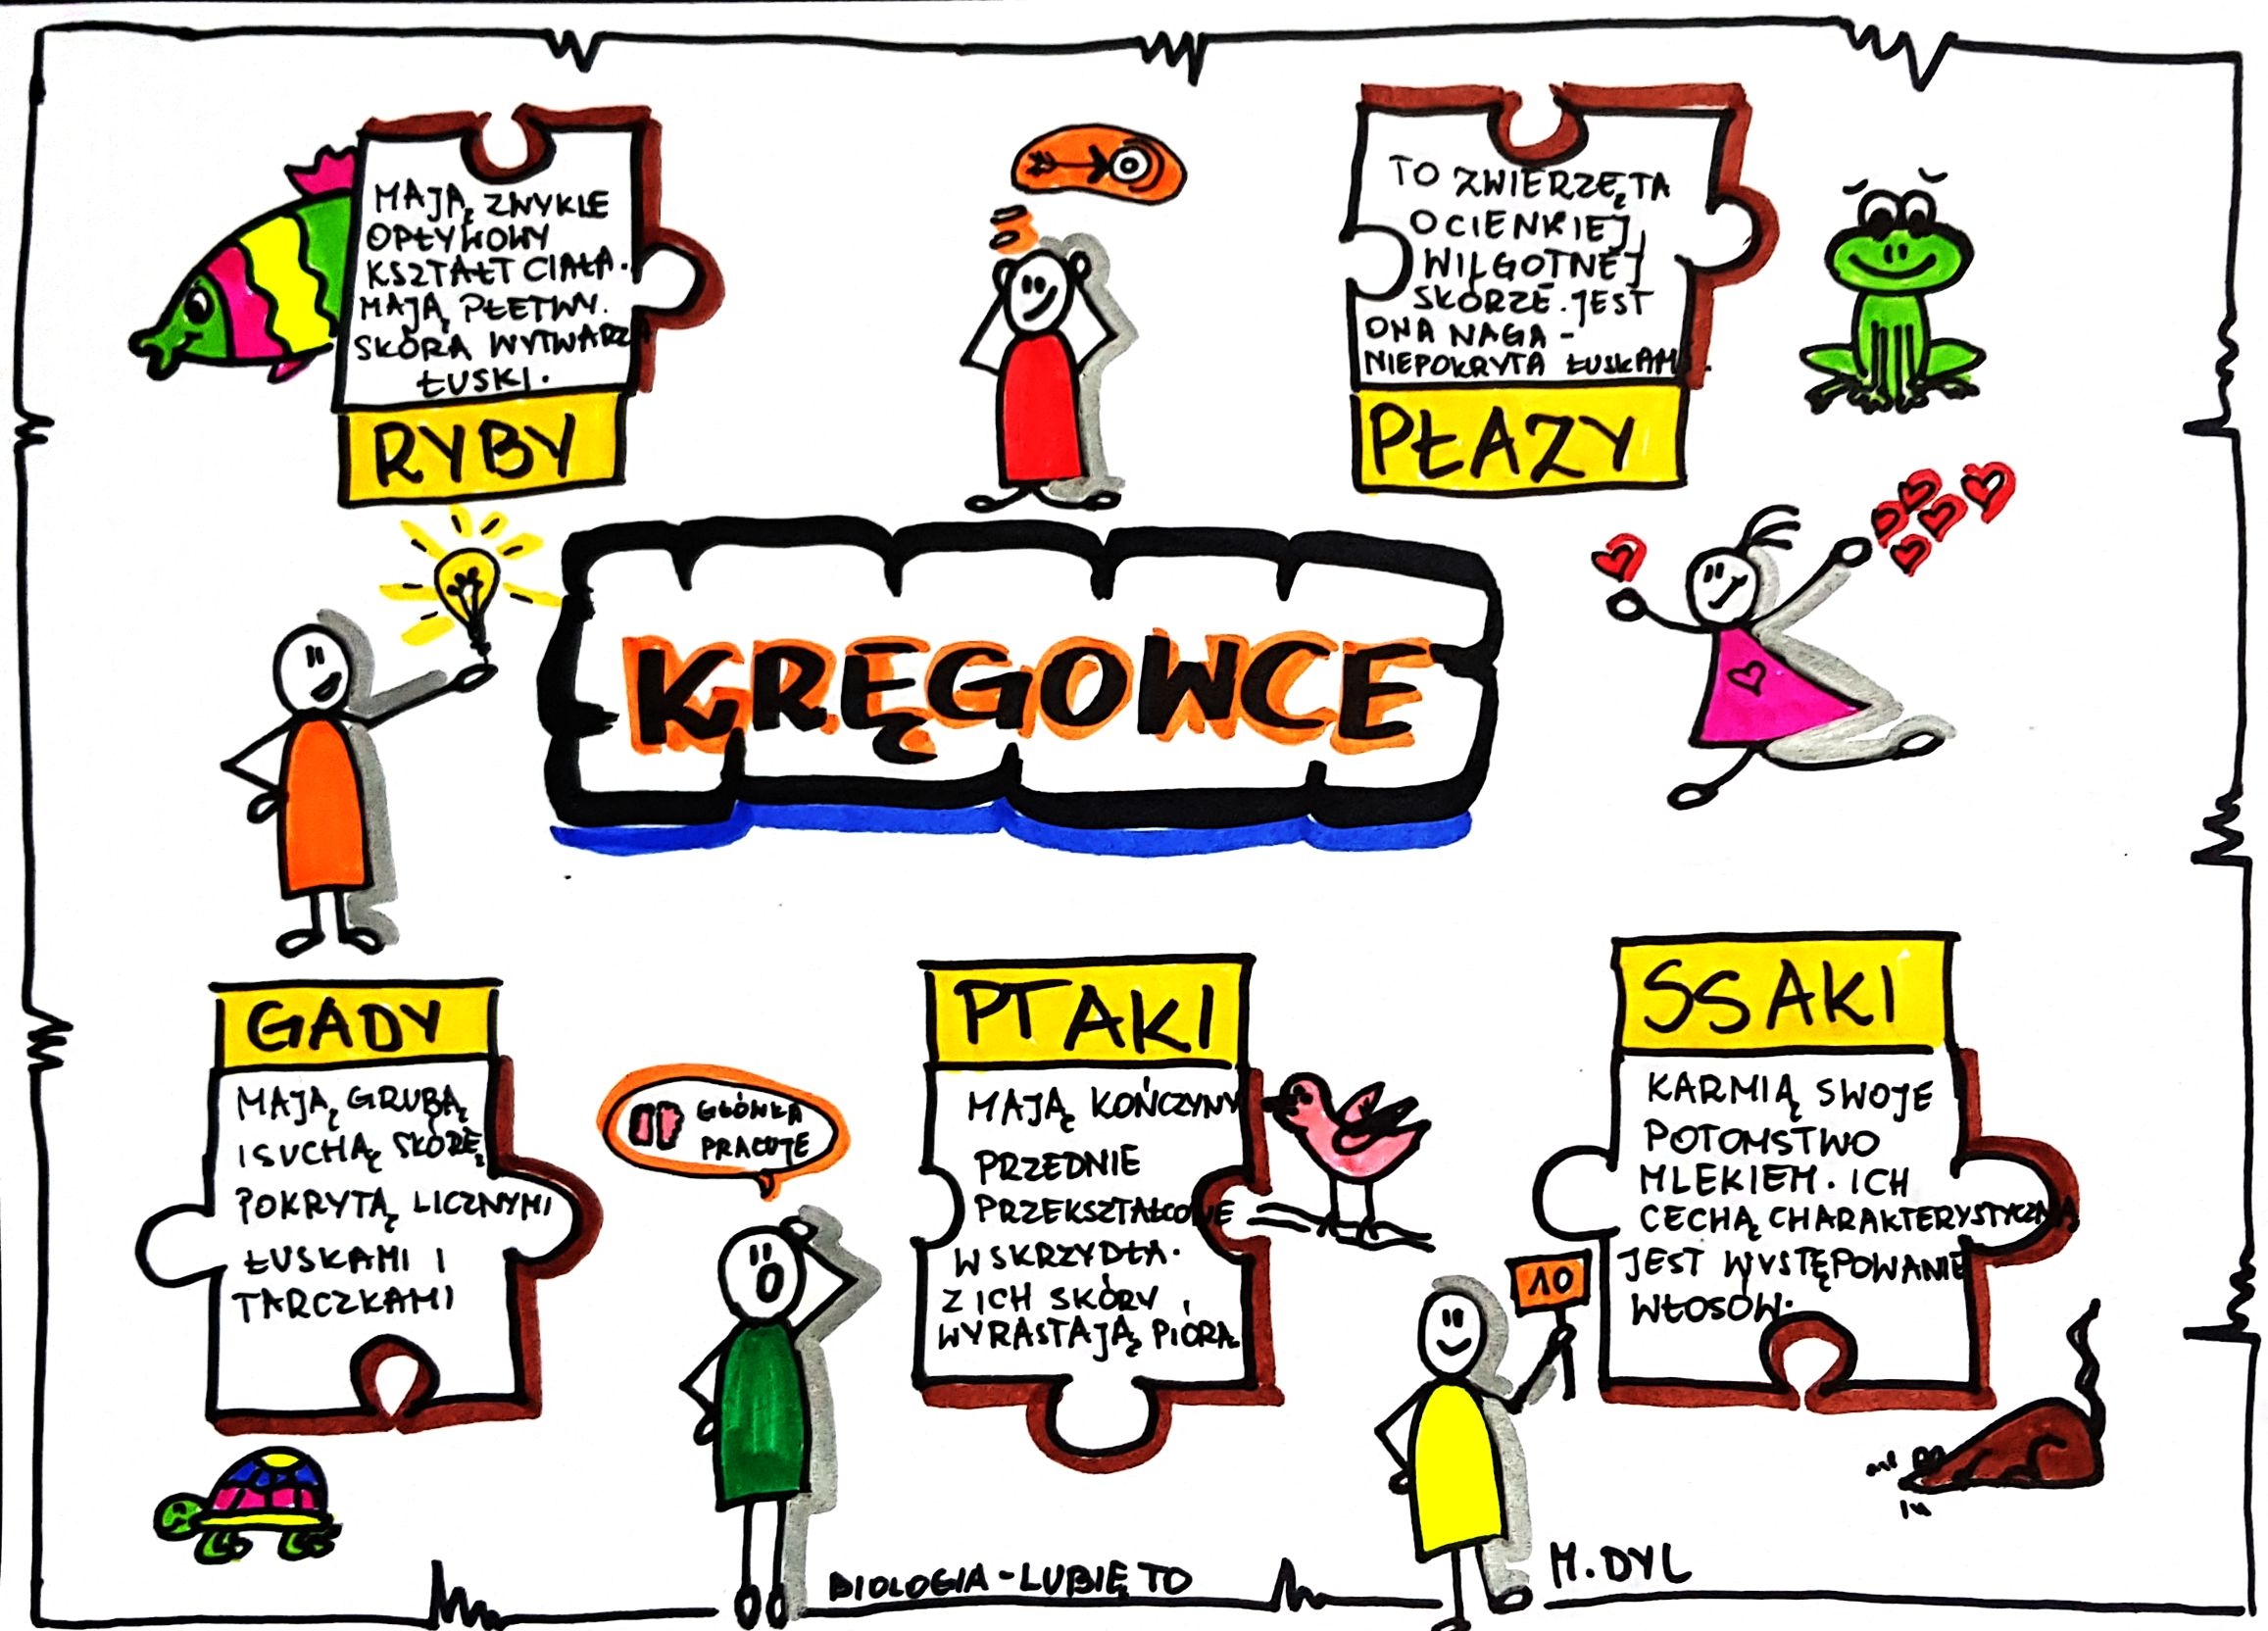 MAJĄ ZWYKLE
OPŁYWOWY
KSZTAŁT CIAŁA.
MAJĄ PŁETWY.
SKÓRA WYTWARZA
ŁUSKI.
RYBY
TO ZWIERZĘTA
O CIENKIEJ,
WILGOTNEJ
SKÓRZE. JEST
ONA NAGA -
NIEPOKRYTA ŁUSKAMI.
PŁAZY
KRĘGOWCE
GADY
MAJĄ GRUBĄ
I SUCHĄ SKÓRĘ
POKRYTĄ LICZNYMI
ŁUSKAMI I
TARCZKAMI
GŁÓWKA
PRACUJE
PTAKI
MAJĄ KOŃCZYNY
PRZEDNIE
PRZEKSZTAŁCONE
W SKRZYDŁA.
Z ICH SKÓRY
WYRASTAJĄ PIÓRA.
SSAKI
KARMIĄ SWOJE
POTOMSTWO
MLEKIEM. ICH
CECHĄ CHARAKTERYSTYCZNĄ
JEST WYSTĘPOWANIE
WŁOSÓW.
10
BIOLOGIA - LUBIĘ TO
M. DYL